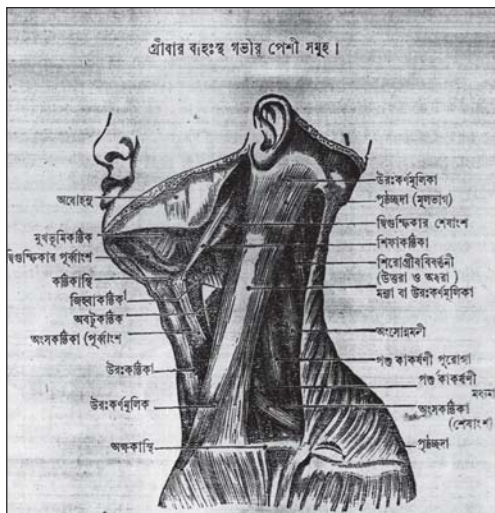 গ্রীবার বহিঃস্থ গভীর পেশী সমূহ।
অধোহনু
মুখভূমিকণ্ঠিক
দ্বিগুম্ফিকার পূর্ব্বাংশ
কণ্ঠিকাস্থি
জিহ্বাকণ্ঠিকা
অবটুকণ্ঠিক
অংসকণ্ঠিকা (পূর্ব্বাংশ
উরঃকণ্ঠিকা
উরঃকর্ণমূলিক
অক্ষকাস্থি
উরঃকর্ণমূলিকা
পৃষ্ঠচ্ছদা (মূলভাগ)
দ্বিগুম্ফিকার শেষাংশ
শিফাকণ্ঠিকা
শিরোগ্রীববিবর্ত্তনী
(উত্তরা ও অধরা)
মন্যা বা উরঃকর্ণমূলিকা
অংসোন্নমনী
পর্শুকাকর্ষণী পুরোগা
পর্শুকাকর্ষণী
অংসকণ্ঠিকা
(শেষাংশ)
পৃষ্ঠচ্ছদা